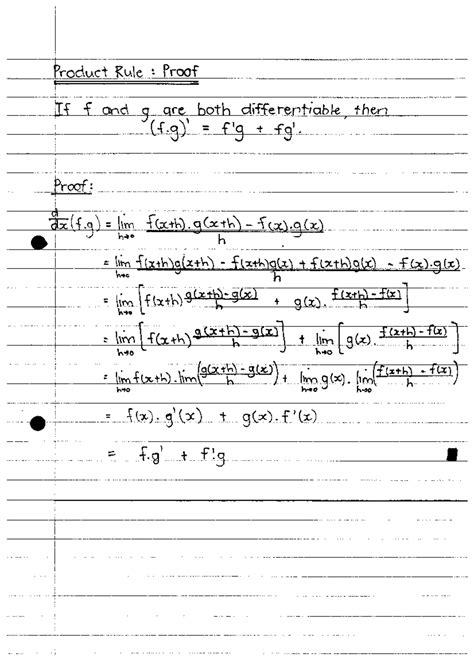 Product Rule : Proof
If f and g are both differentiable, then
(f.g)' = f'g + fg'.
Proof:
d/dx (f.g) = lim h→0 f(x+h).g(x+h) - f(x).g(x) / h
= lim h→0 f(x+h)g(x+h) - f(x+h)g(x) + f(x+h)g(x) - f(x).g(x) / h
= lim h→0 [ f(x+h) g(x+h)-g(x) / h + g(x). f(x+h)-f(x) / h ]
= lim h→0 [ f(x+h) g(x+h)-g(x) / h ] + lim h→0 [ g(x). f(x+h)-f(x) / h ]
= lim h→0 f(x+h). lim h→0 ( g(x+h)-g(x) / h ) + lim h→0 g(x). lim h→0 ( f(x+h)-f(x) / h )
= f(x). g'(x) + g(x). f'(x)
= f.g' + f'.g